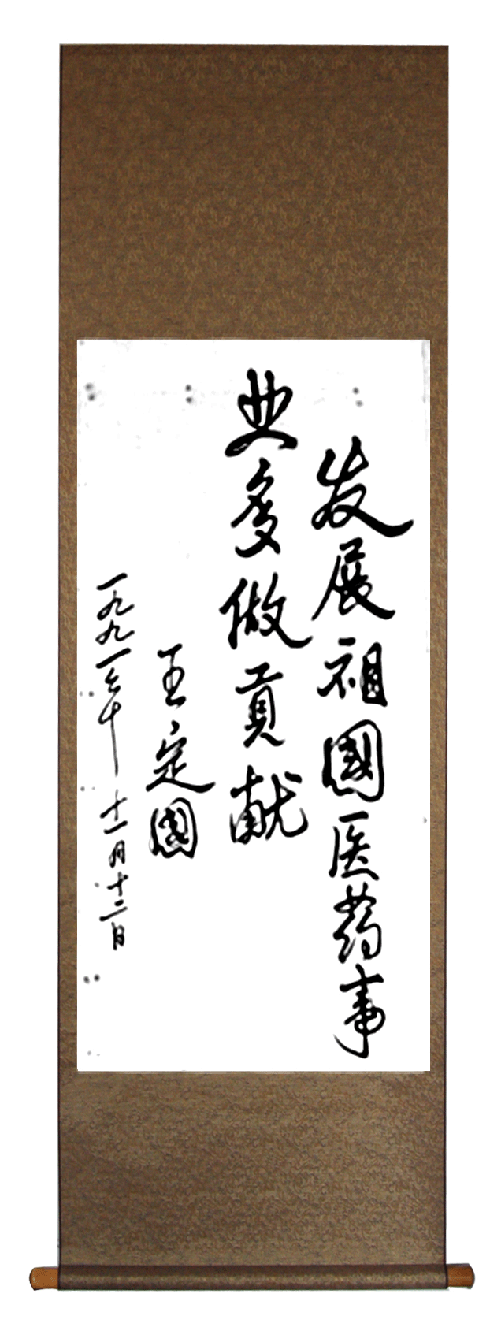 发展祖國医药事
业多做貢献
王定國
一九九一年十一月十二日